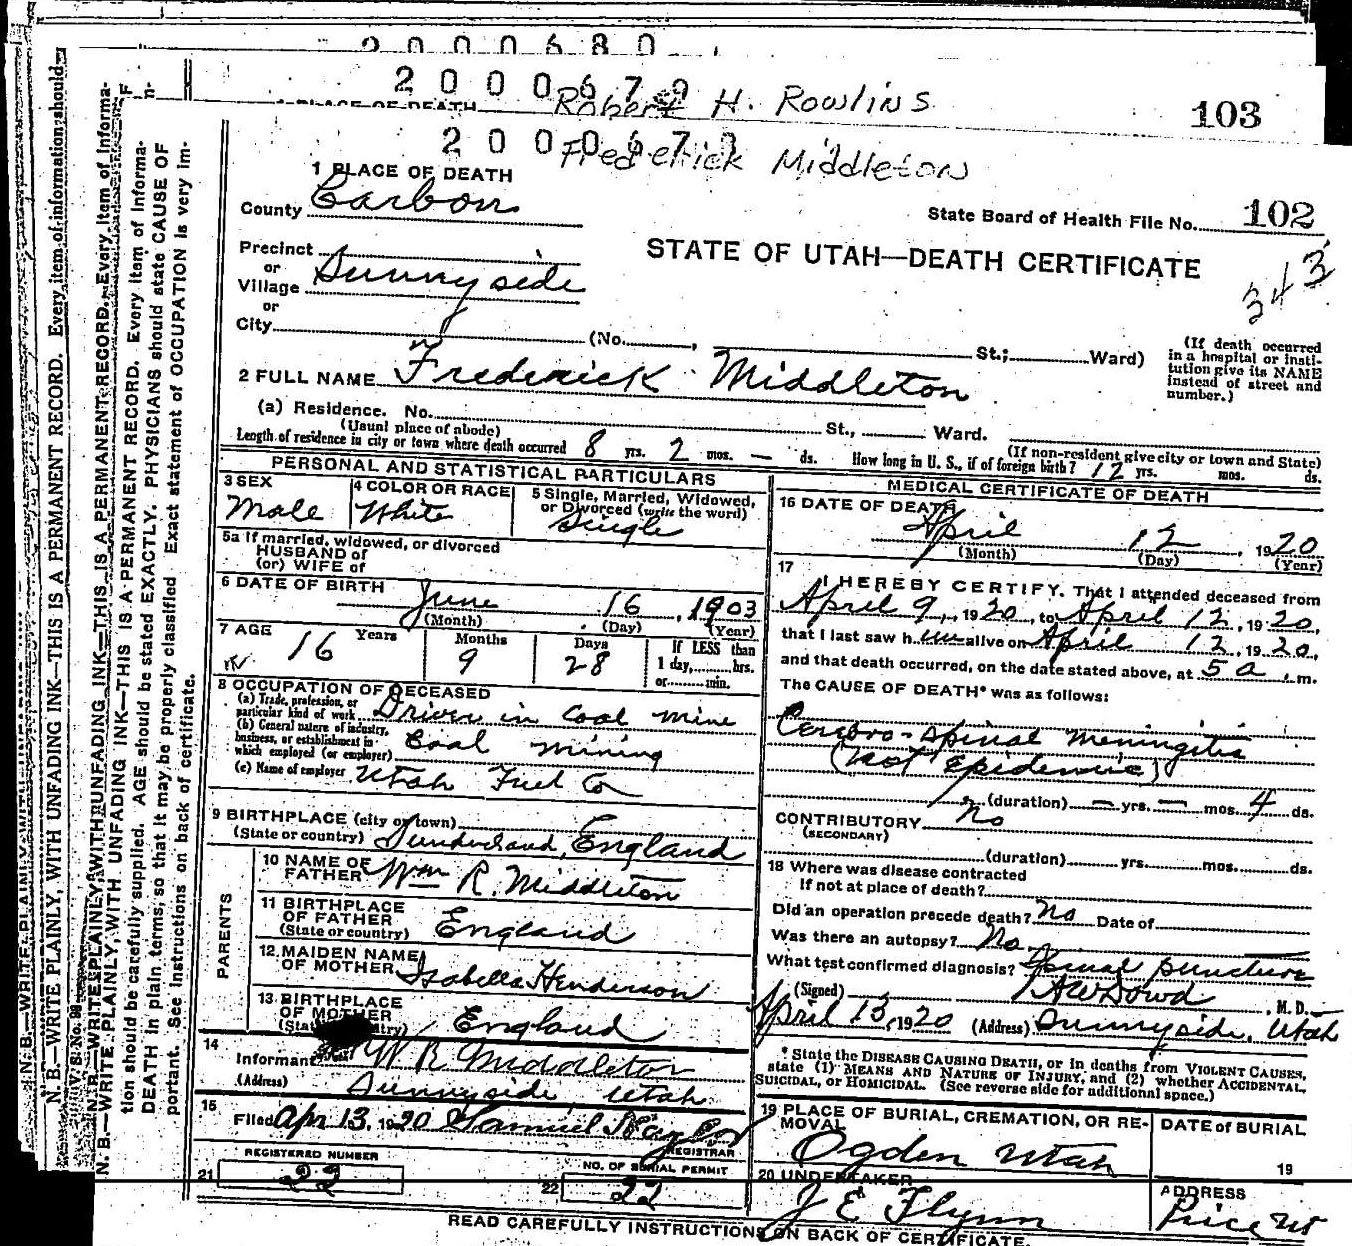 2 0 0 0 6 8 0
2 0 0 0 6 7 9
Robert H. Rowlins
103
PLACE OF DEATH
2 0 0 0 6 7
Frederick Middleton
1 PLACE OF DEATH
County Carbon
State Board of Health File No. 102
Precinct
or
Village Sunnyside
or
City (No. , St.; Ward)
STATE OF UTAH—DEATH CERTIFICATE
343
(If death occurred
in a hospital or insti-
tution give its NAME
instead of street and
number.)
2 FULL NAME Frederick Middleton
(a) Residence. No. St., Ward.
(Usual place of abode)
(If non-resident give city or town and State)
Length of residence in city or town where death occurred 8 yrs. 2 mos. — ds. How long in U. S., if of foreign birth? 12 yrs. mos. ds.
PERSONAL AND STATISTICAL PARTICULARS
3 SEX
Male
4 COLOR OR RACE
White
5 Single, Married, Widowed,
or Divorced (write the word)
Single
5a If married, widowed, or divorced
HUSBAND of
(or) WIFE of
6 DATE OF BIRTH June 16, 1903
(Month) (Day) (Year)
7 AGE
16 Years
9 Months
28 Days
If LESS than
1 day, hrs.
or min.
8 OCCUPATION OF DECEASED
(a) Trade, profession, or
particular kind of work Driver in Coal mine
(b) General nature of industry,
business, or establishment in
which employed (or employer) Coal mining
(c) Name of employer Utah Fuel Co
9 BIRTHPLACE (city or town)
(State or country) Sunderland, England
PARENTS
10 NAME OF
FATHER Wm R. Middleton
11 BIRTHPLACE
OF FATHER
(State or country) England
12 MAIDEN NAME
OF MOTHER Isabella Henderson
13 BIRTHPLACE
OF MOTHER
England
14
Informant W R Middleton
(Address) Sunnyside, Utah
15
Filed Apr 13, 1920 Samuel Naylor
REGISTRAR
REGISTERED NUMBER
21 22
NO. OF BURIAL PERMIT
22 22
MEDICAL CERTIFICATE OF DEATH
16 DATE OF DEATH
April 12, 1920
(Month) (Day) (Year)
17
I HEREBY CERTIFY. That I attended deceased from
April 9, 1920, to April 12, 1920,
that I last saw him alive on April 12, 1920,
and that death occurred, on the date stated above, at 5 a.m.
The CAUSE OF DEATH* was as follows:
Cerebro-spinal Meningitis
(Not Epidemic)
(duration) — yrs. — mos. 4 ds.
CONTRIBUTORY No
(SECONDARY)
(duration) yrs. mos. ds.
18 Where was disease contracted
If not at place of death?
Did an operation precede death? No Date of
Was there an autopsy? No.
What test confirmed diagnosis? Spinal puncture
(Signed) A W Dowd, M. D.
April 13, 1920 (Address) Sunnyside, Utah
* State the DISEASE CAUSING DEATH, or in deaths from VIOLENT CAUSES,
state (1) MEANS AND NATURE OF INJURY, and (2) whether ACCIDENTAL,
SUICIDAL, or HOMICIDAL. (See reverse side for additional space.)
19 PLACE OF BURIAL, CREMATION, OR RE-
MOVAL
Ogden Utah
DATE of BURIAL
19
20 UNDERTAKER
J E Flynn
ADDRESS
Price Ut
READ CAREFULLY INSTRUCTIONS ON BACK OF CERTIFICATE.
V. S. No. 98
N. B.—WRITE PLAINLY, WITH UNFADING INK—THIS IS A PERMANENT RECORD. Every item of information should
N. B.—WRITE PLAINLY, WITH UNFADING INK—THIS IS A PERMANENT RECORD. Every item of informa-
N. B.—WRITE PLAINLY, WITH UNFADING INK—THIS IS A PERMANENT RECORD. Every item of informa-
tion should be carefully supplied. AGE should be stated EXACTLY. PHYSICIANS should state CAUSE OF
DEATH in plain terms, so that it may be properly classified. Exact statement of OCCUPATION is very im-
portant. See instructions on back of certificate.